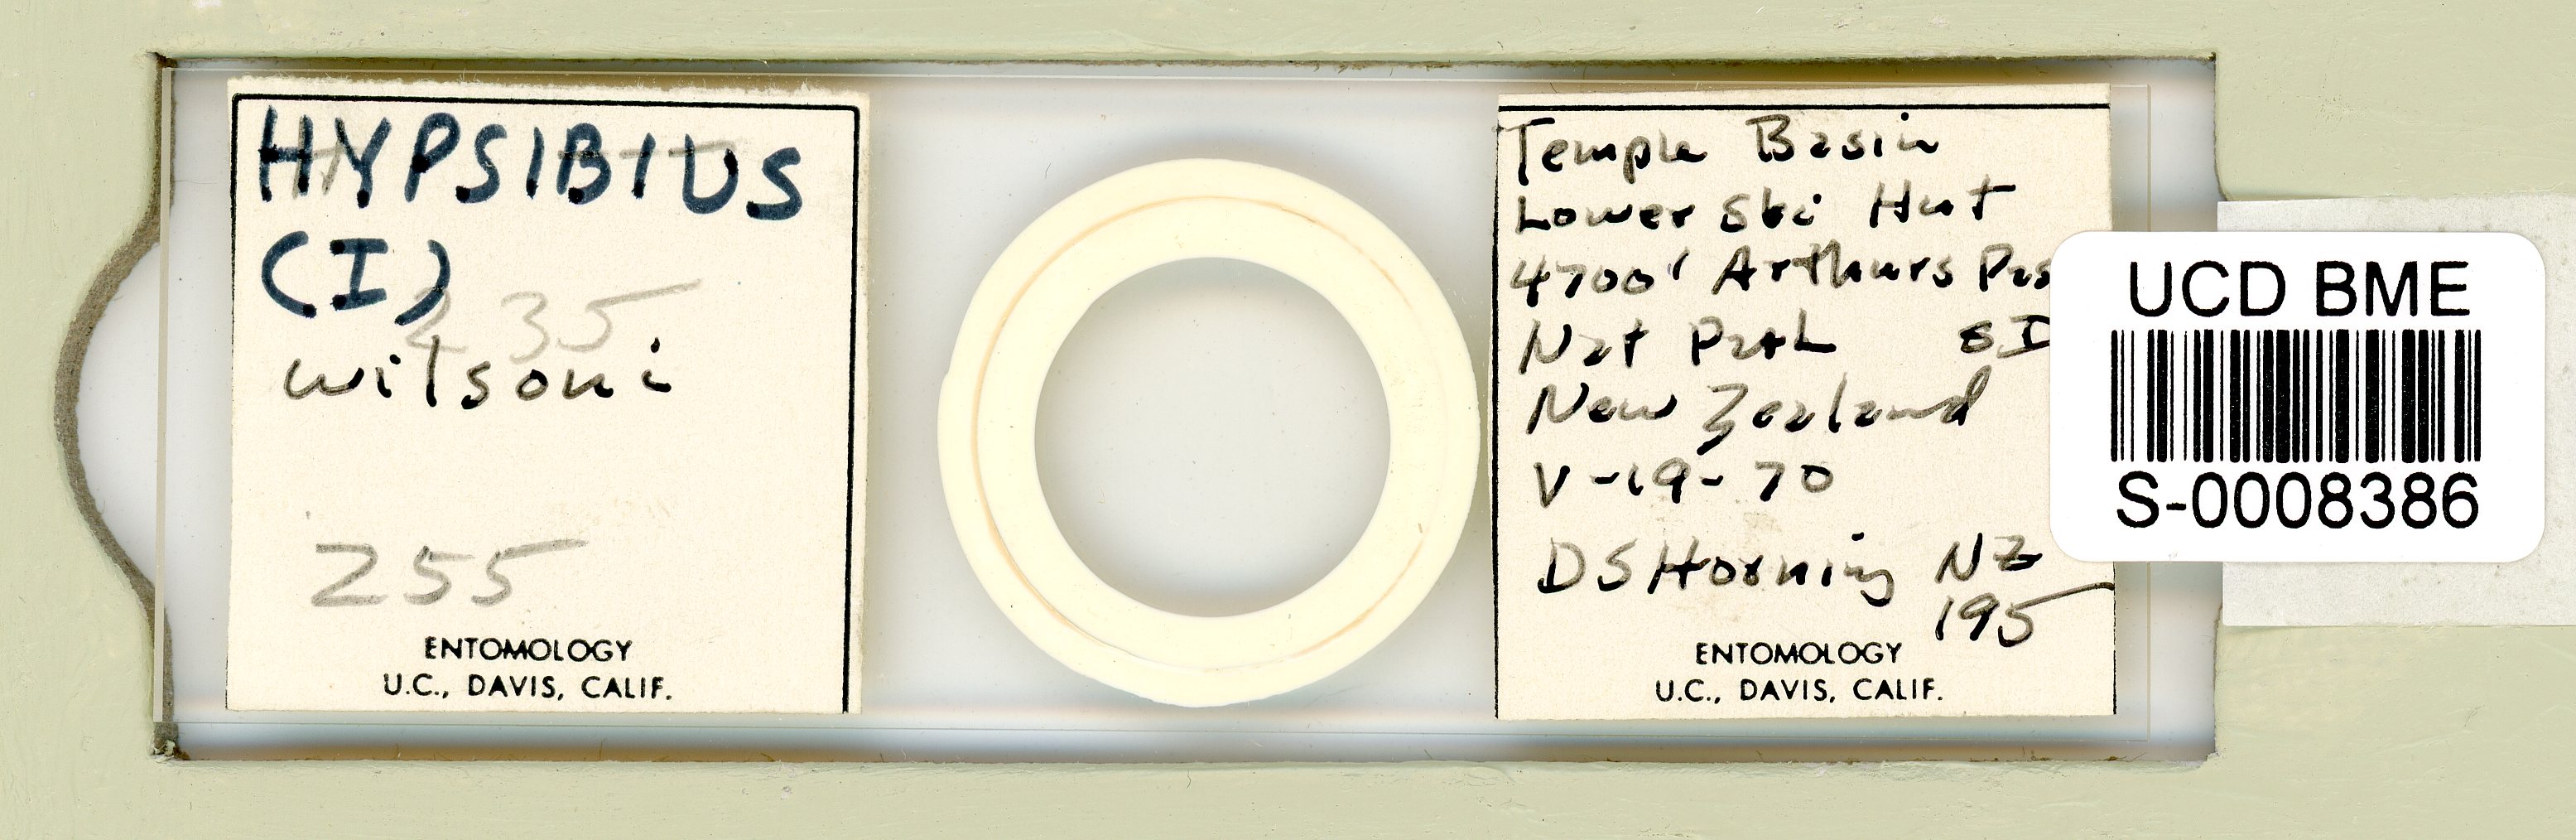 HYPSIBIUS
(I)
235
wilsoni
255
ENTOMOLOGY
U.C., DAVIS, CALIF.
Temple Basin
Lower Ski Hut
4700' Arthurs Pas
Nat Park SI
New Zealand
V-19-70
DSHorning NZ
195
ENTOMOLOGY
U.C., DAVIS, CALIF.
UCD BME
S-0008386